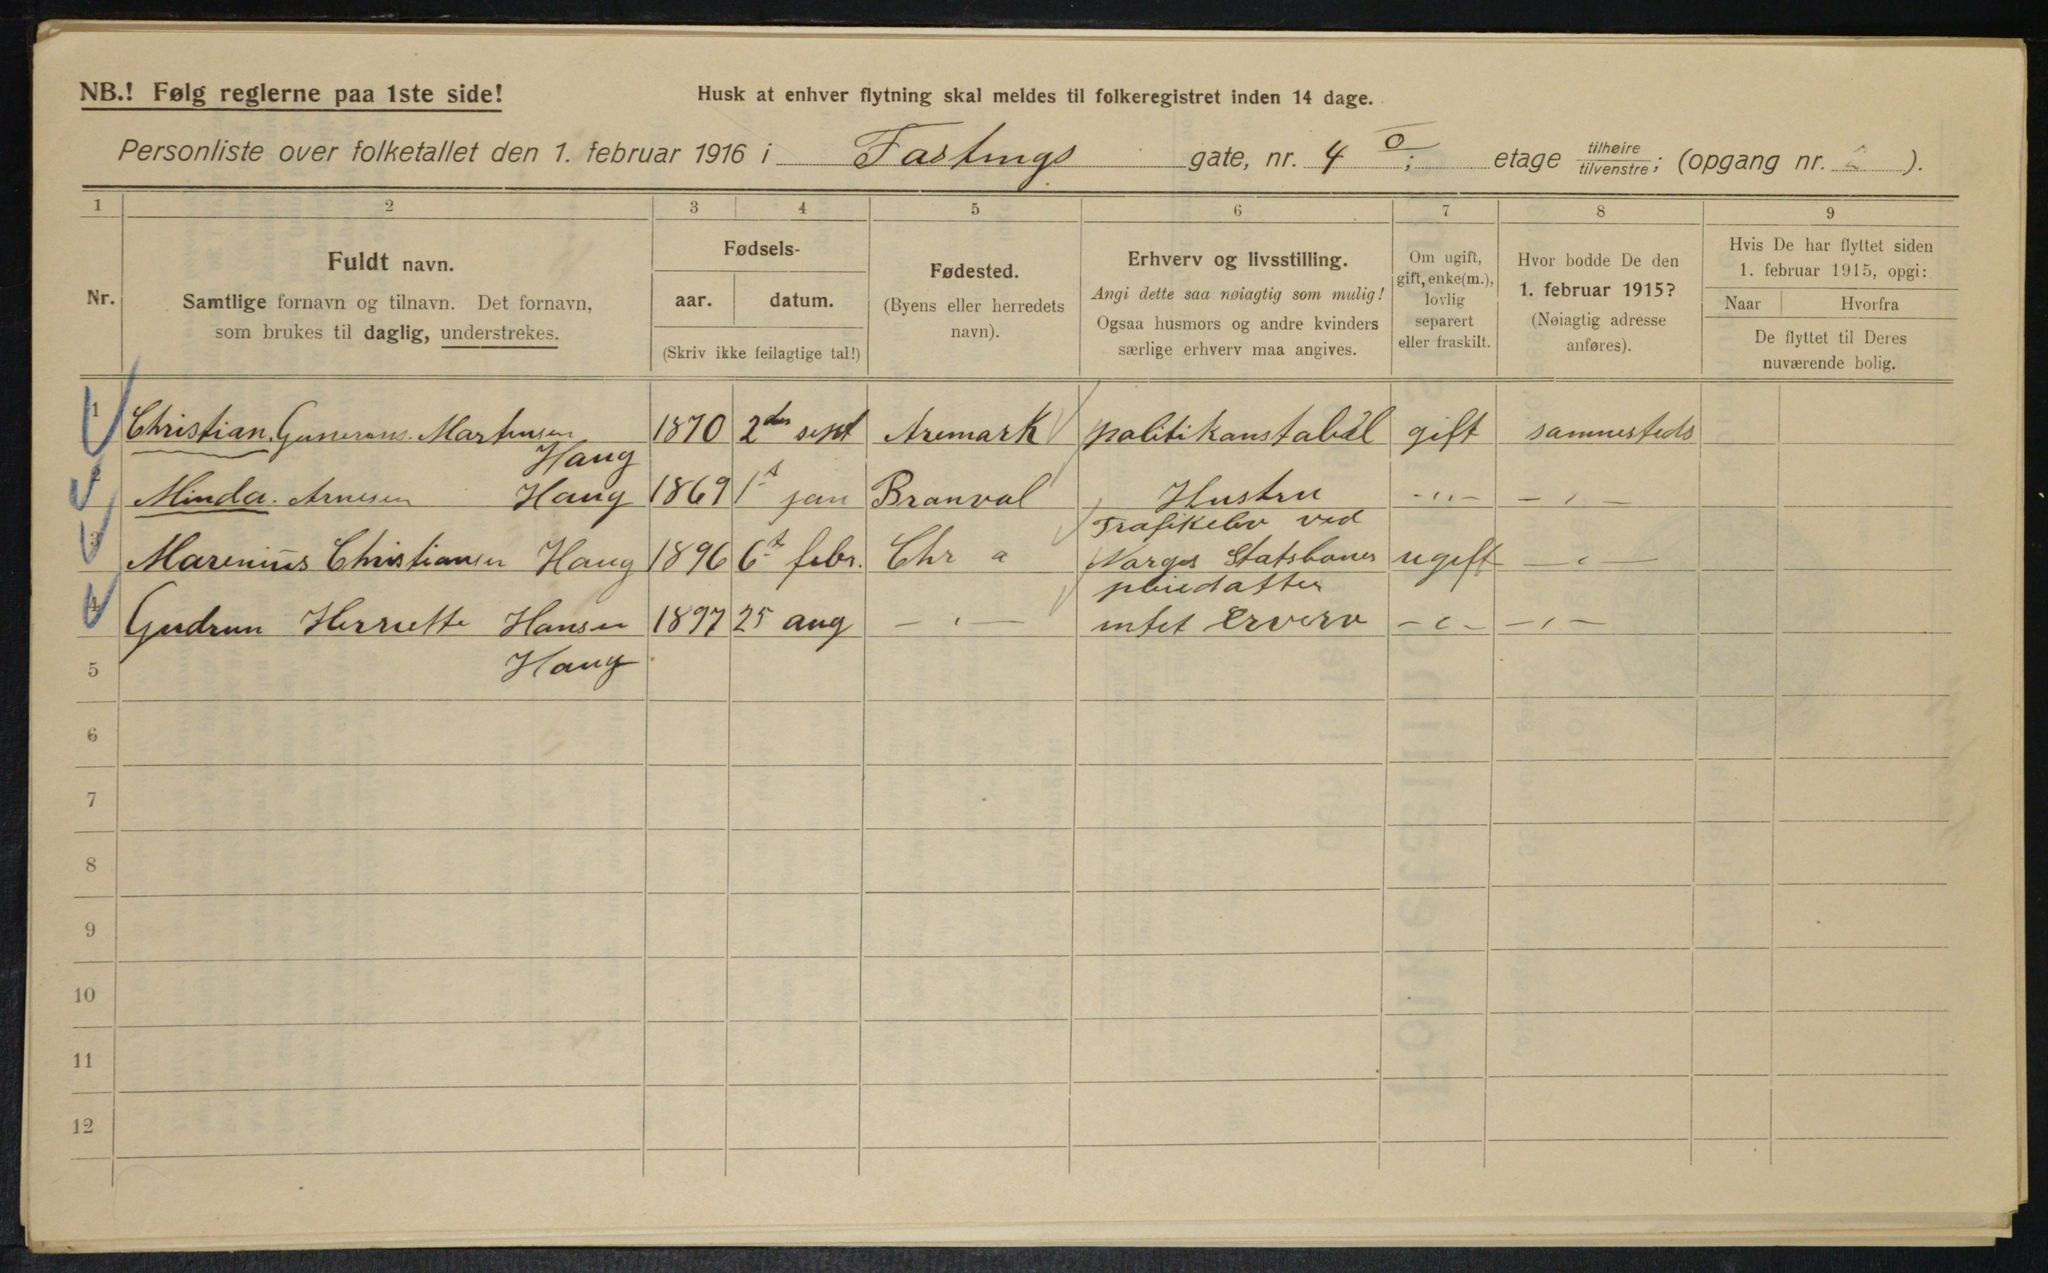 NB.! Følg reglerne paa 1ste side!
Husk at enhver flytning skal meldes til folkeregistret inden 14 dage.
Personliste over folketallet den 1. februar 1916 i Fastings gate, nr. 4 etage tilheire/tilvenstre; (opgang nr. 2).
1 2 3 4 5 6 7 8 9
Nr.
Fuldt navn.
Samtlige fornavn og tilnavn. Det fornavn,
som brukes til daglig, understrekes.
Fødsels-
aar. datum.
(Skriv ikke feilagtige tal!)
Fødested.
(Byens eller herredets
navn).
Erhverv og livsstilling.
Angi dette saa nøiagtig som mulig!
Ogsaa husmors og andre kvinders
særlige erhverv maa angives.
Om ugift,
gift, enke(m.),
lovlig
separert
eller fraskilt.
Hvor bodde De den
1. februar 1915?
(Nøiagtig adresse
anføres).
Hvis De har flyttet siden
1. februar 1915, opgi:
Naar Hvorfra
De flyttet til Deres
nuværende bolig.
1 Christian. Martinsen 1870 2den sept Aremark politikonstabel gift sammesteds
Haug
2 Minda. Arnesen Haug 1869 1st jan Branval Hustru -"- -"-
Trafikelev ved
3 Marenius Christiansen Haug 1896 6t febr. Chr a Norges Statsbaner ugift -"-
pleiedatter
4 Gudrun Henriette Hansen 1897 25 aug -"- intet Erverv -"- -"-
Haug
5
6
7
8
9
10
11
12